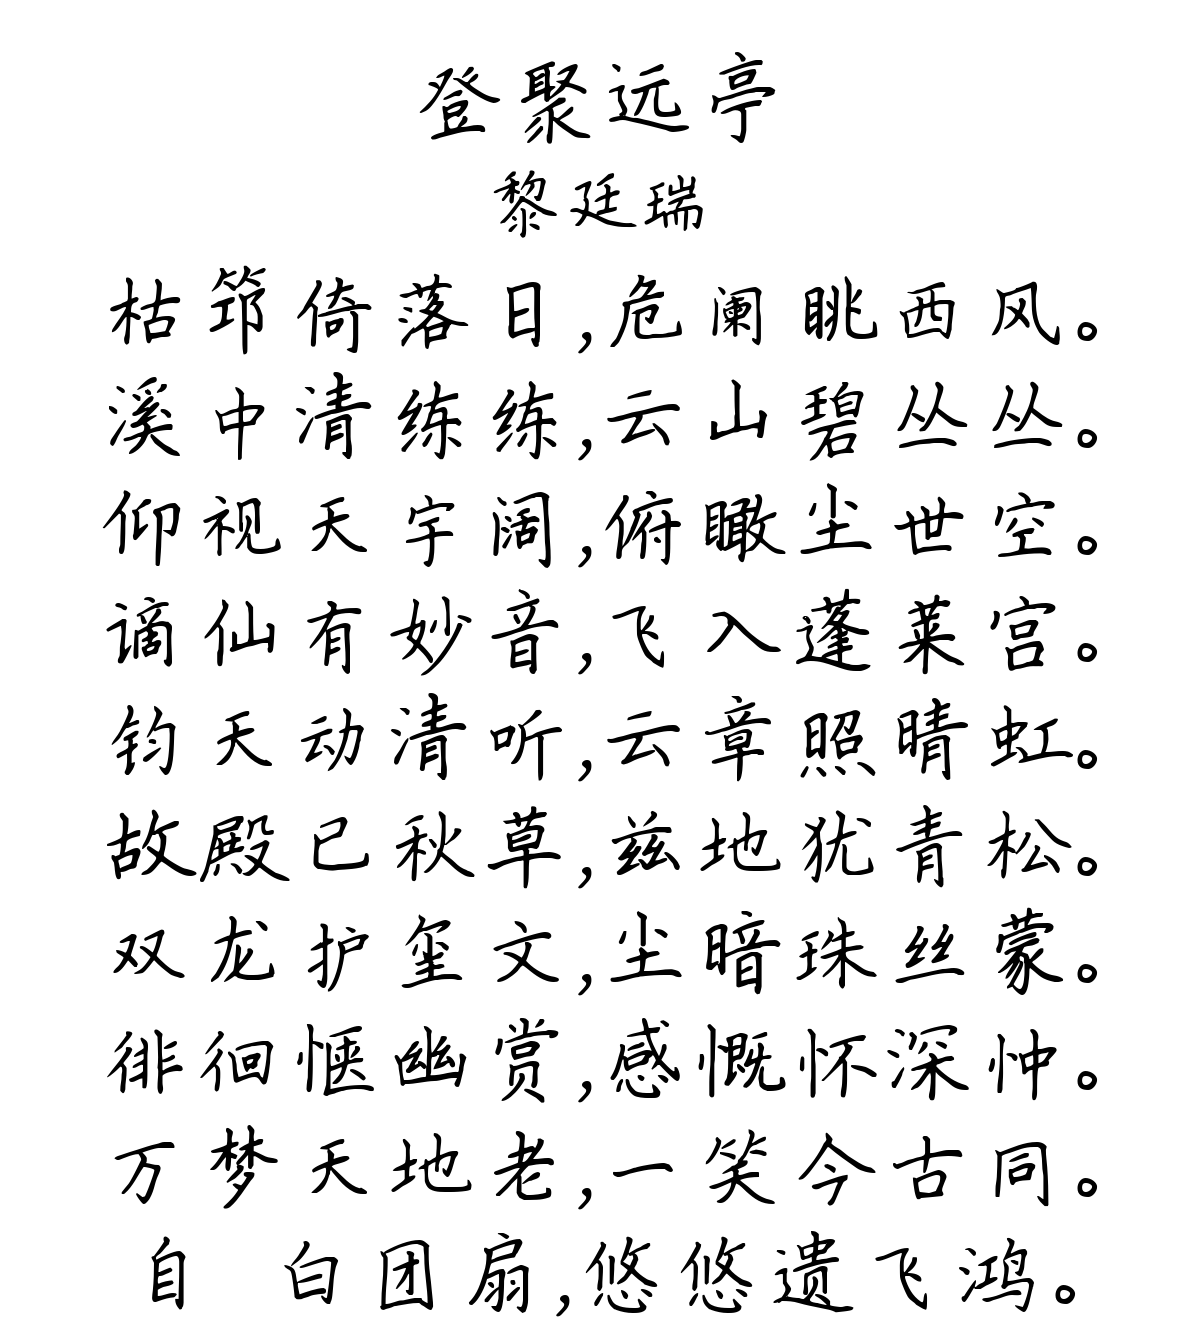 登聚远亭
黎廷瑞
枯筇倚落日,危阑眺西风。
溪中清练练,云山碧丛丛。
仰视天宇阔,俯瞰尘世空。
谪仙有妙音,飞入蓬莱宫。
钧天动清听,云章照晴虹。
故殿已秋草,兹地犹青松。
双龙护玺文,尘暗珠丝蒙。
徘徊惬幽赏,感慨怀深忡。
万梦天地老,一笑今古同。
自 白团扇,悠悠遗飞鸿。